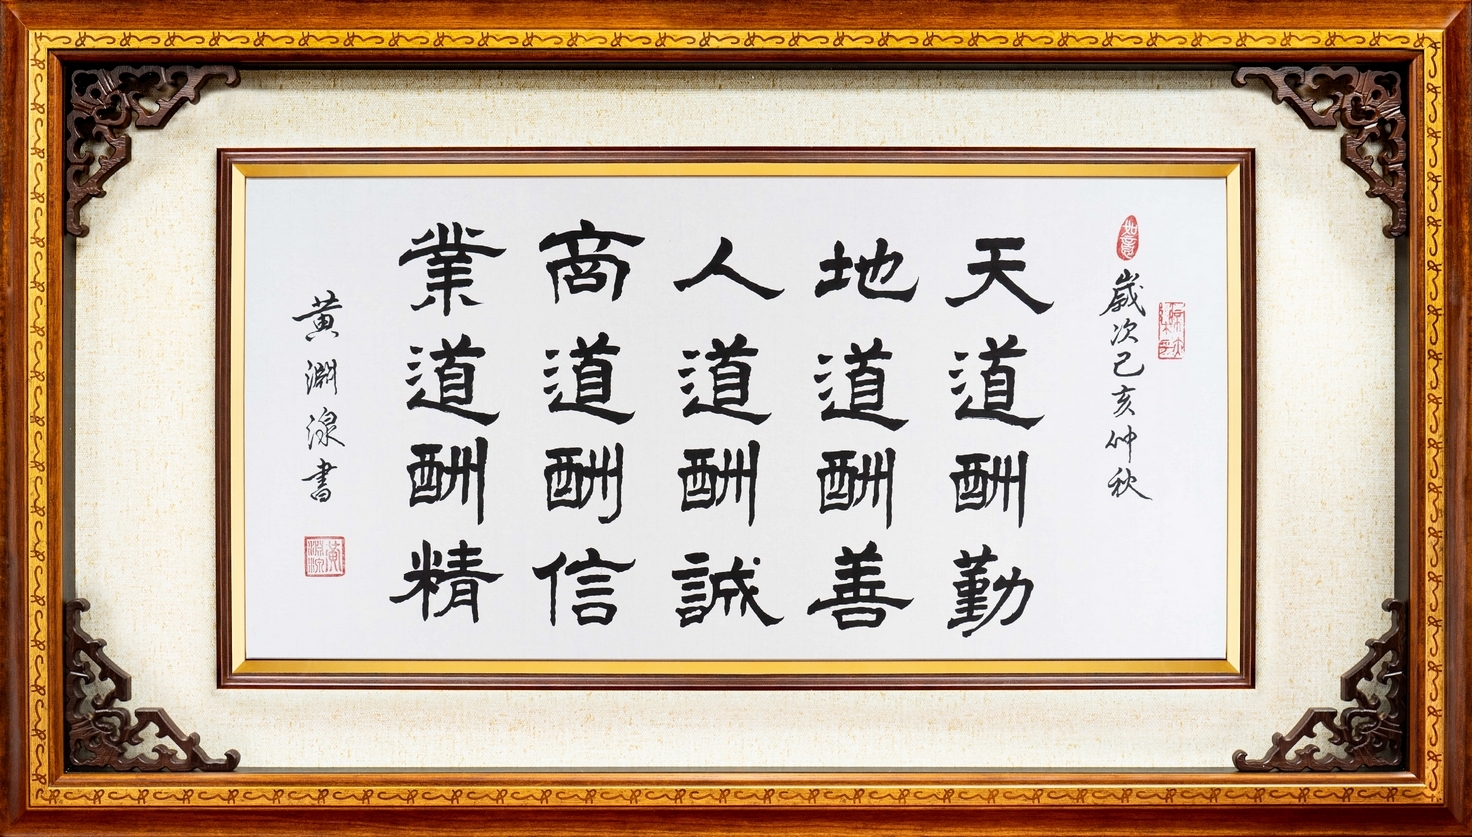 如意
歲次己亥仲秋
天道酬勤
地道酬善
人道酬誠
商道酬信
業道酬精
黃淵湶書